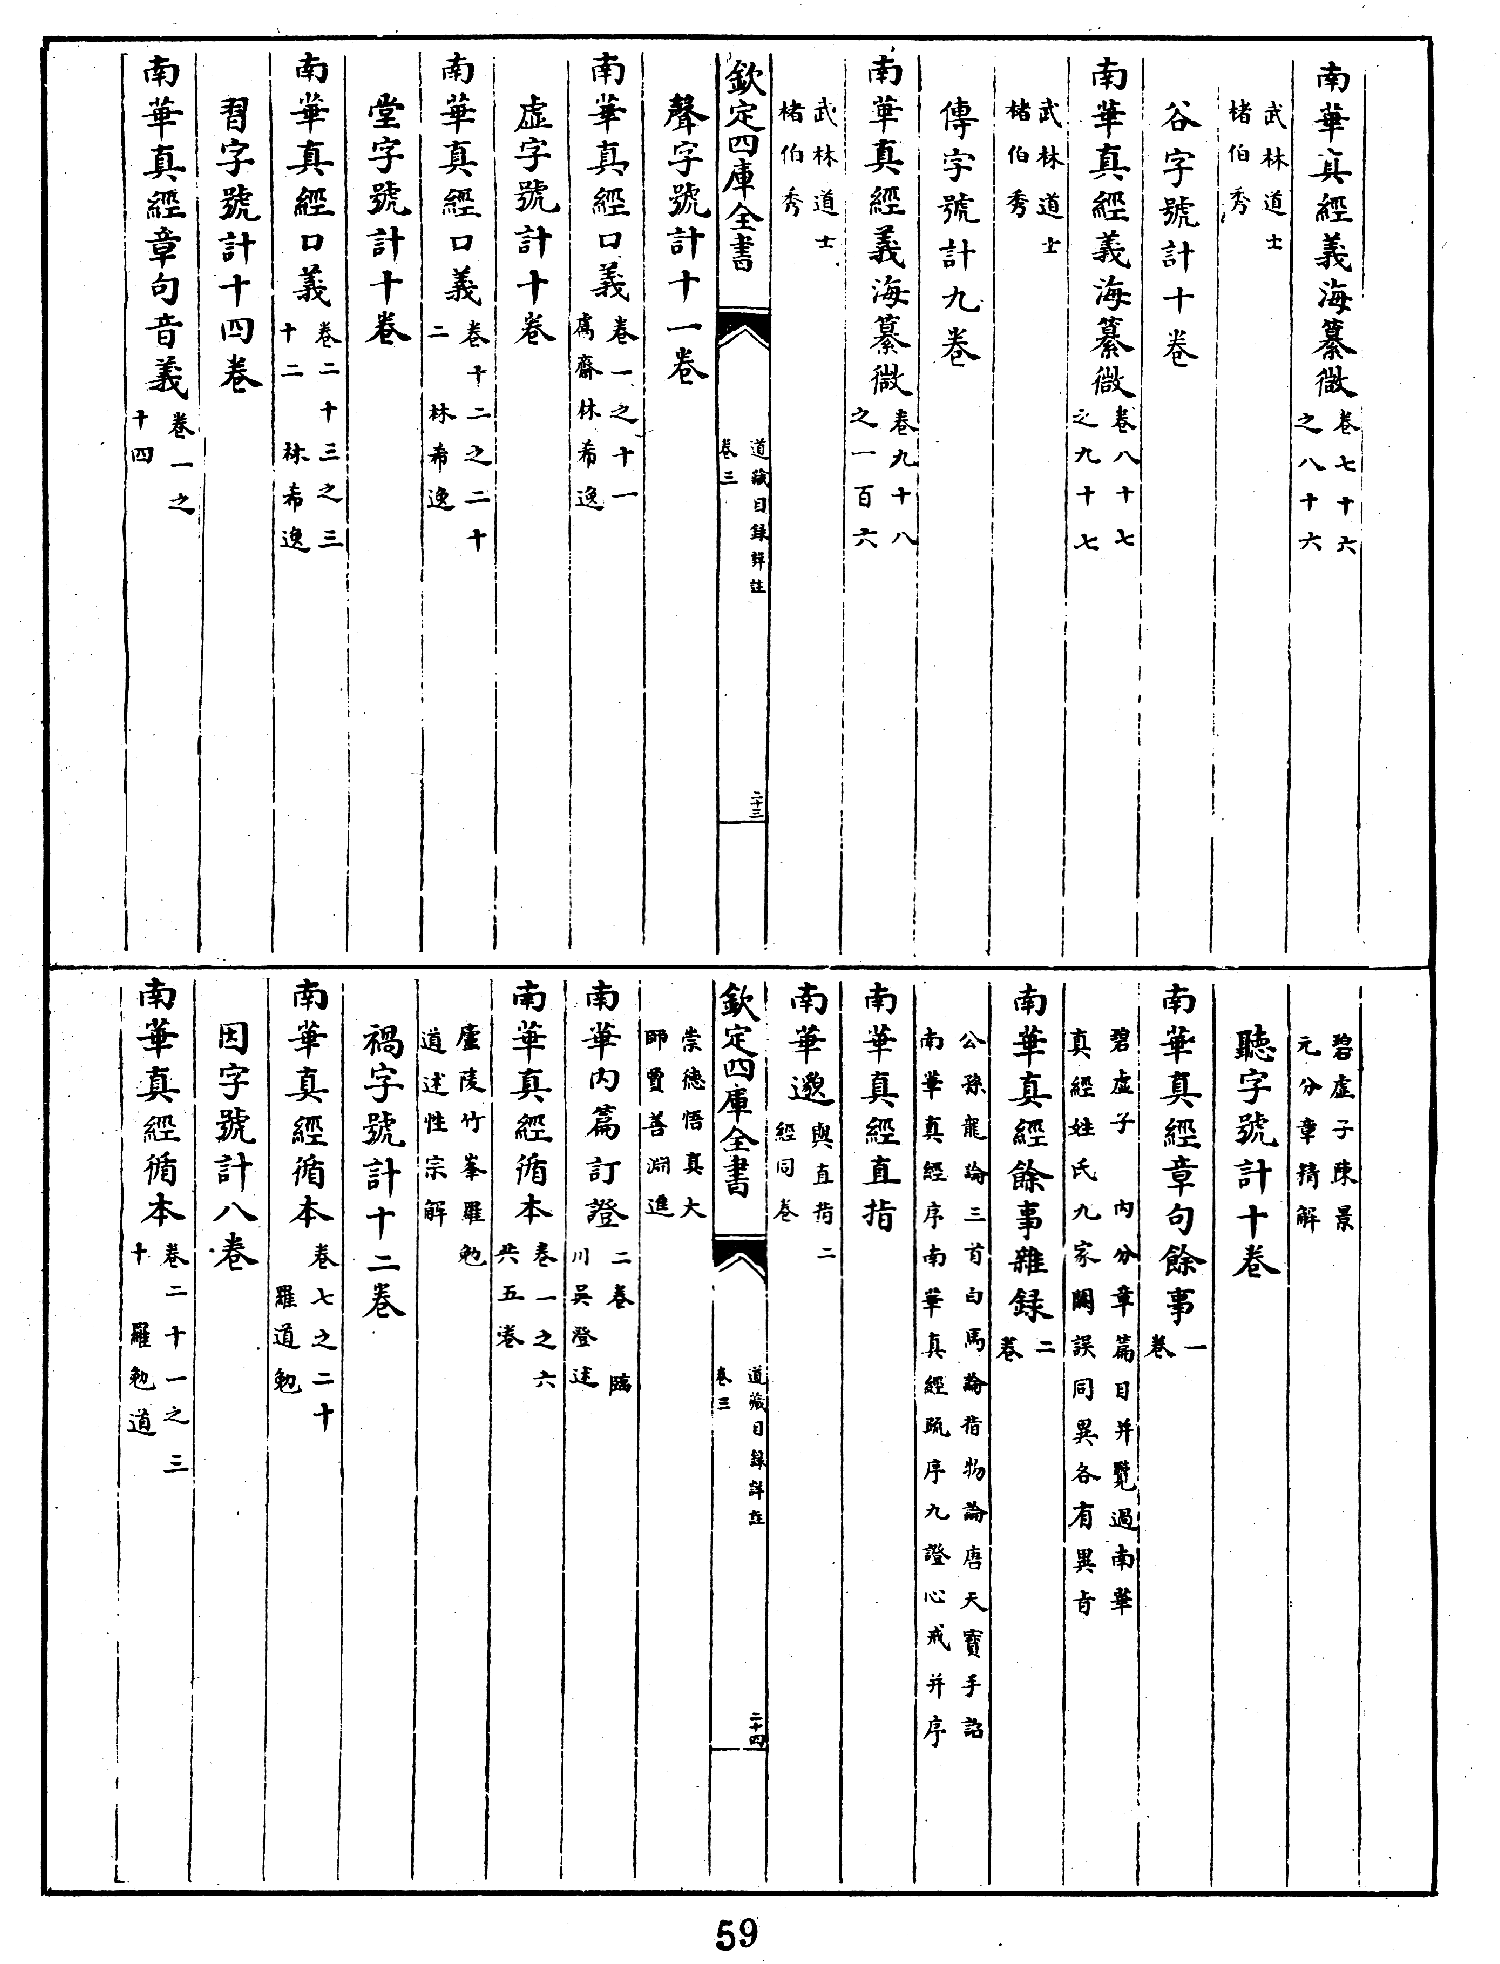 南華真經義海纂微卷七十六之八十六
武林道士楮伯秀
谷字號計十卷
南華真經義海纂微卷八十七之九十七
武林道士楮伯秀
傳字號計九卷
南華真經義海纂微卷九十八之一百六
武林道士楮伯秀
欽定四庫全書
道藏目録詳註
卷三
二十三
聲字號計十一卷
南華真經口義卷一之十一鬳齋林希逸
虛字號計十卷
南華真經口義卷十二之二十二 林希逸
堂字號計十卷
南華真經口義卷二十三之三十二 林希逸
習字號計十四卷
南華真經章句音義卷一之十四
碧虛子陳景元分章精解
聽字號計十卷
南華真經章句餘事一卷
碧虛子 内分章篇目并覽過南華真經姓氏九家闕誤同異各有異音
南華真經餘事雜録二卷
公孫龍論三首白馬論指物論唐天寶手詔南華真經序南華真經疏序九證心戒并序
南華真經直指
南華邈與直指二經同卷
欽定四庫全書
道藏目録詳註
卷三
二十四
崇德悟真大師賈善淵進
南華内篇訂證二卷 臨川吳登述
南華真經循本卷一之六共五卷
廬陵竹峯羅勉道述性宗解
禍字號計十二卷
南華真經循本卷七之二十 羅道勉
因字號計八卷
南華真經循本卷二十一之三十 羅勉道
59